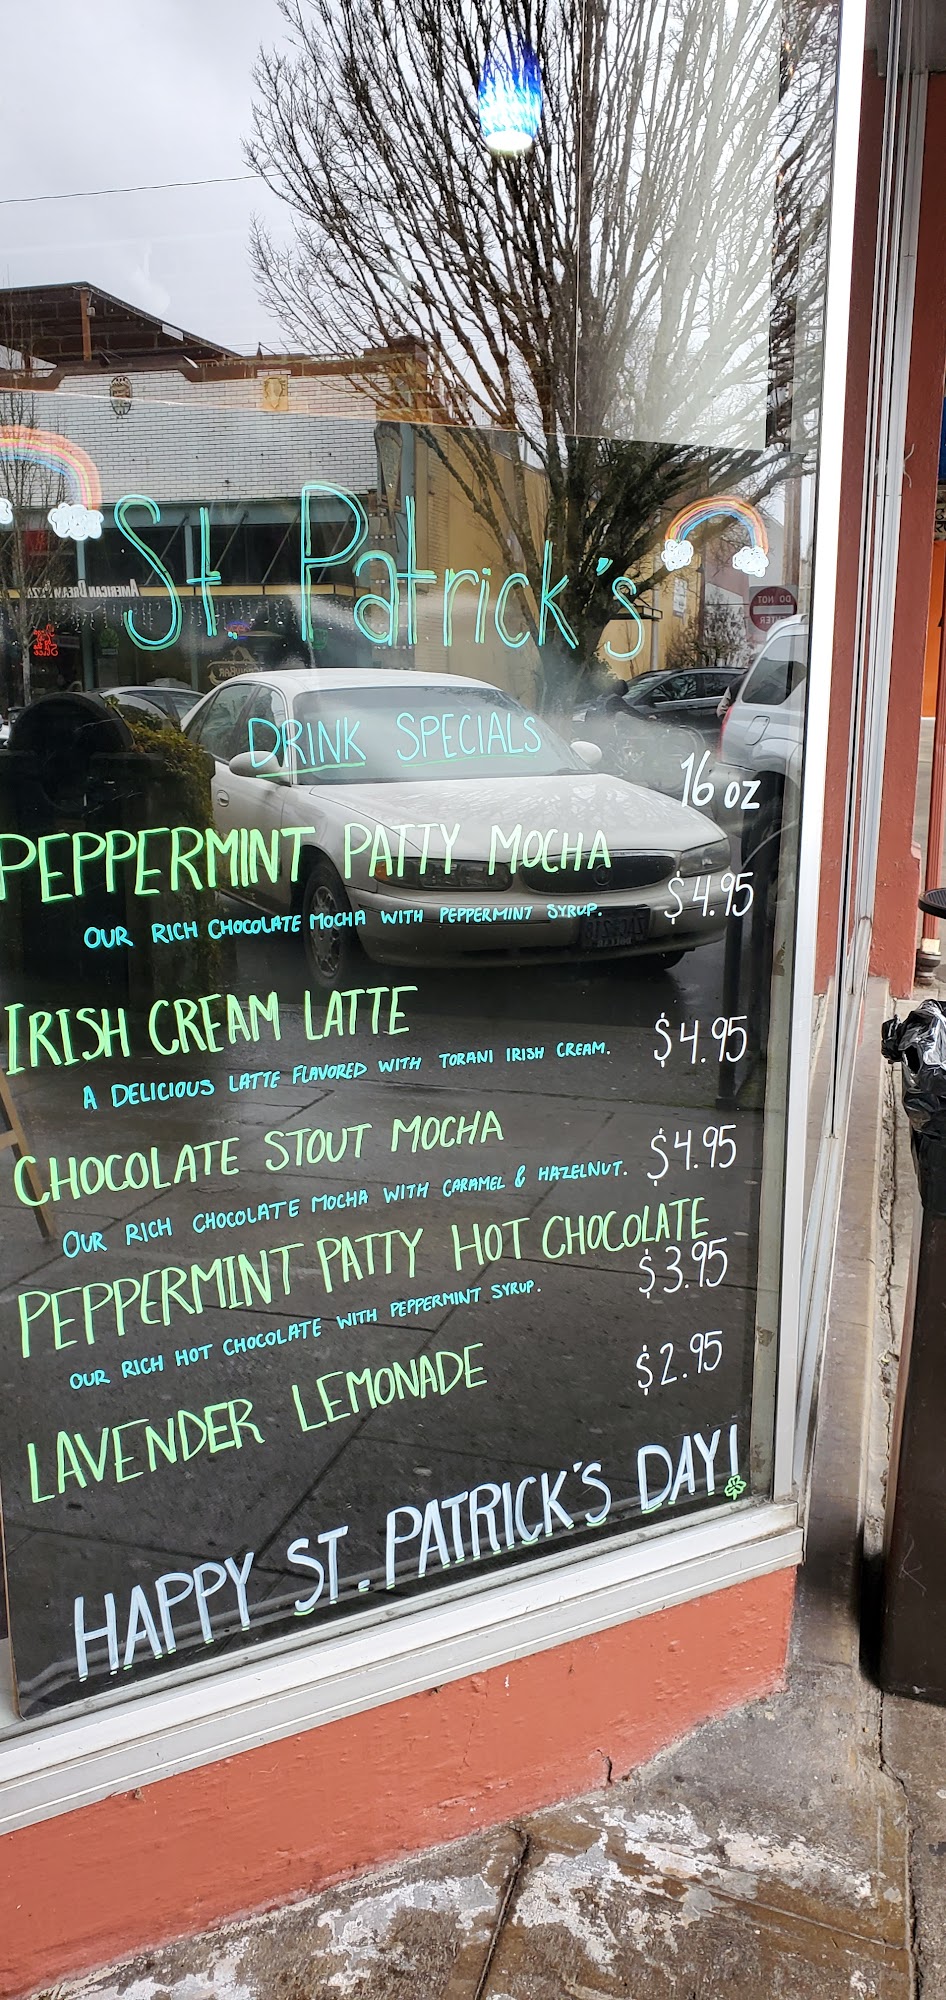 St. Patrick's
DRINK SPECIALS
16 oz
PEPPERMINT PATTY MOCHA
$4.95
OUR RICH CHOCOLATE MOCHA WITH PEPPERMINT SYRUP.
IRISH CREAM LATTE
$4.95
A DELICIOUS LATTE FLAVORED WITH TORANI IRISH CREAM.
CHOCOLATE STOUT MOCHA
$4.95
OUR RICH CHOCOLATE MOCHA WITH CARAMEL & HAZELNUT.
PEPPERMINT PATTY HOT CHOCOLATE
$3.95
OUR RICH HOT CHOCOLATE WITH PEPPERMINT SYRUP.
LAVENDER LEMONADE
$2.95
HAPPY ST. PATRICK'S DAY!
AMERICAN DREAM PIZZA
DO NOT
ENTER